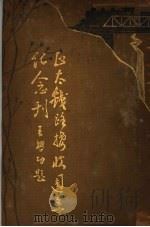 正太鐵路接收週年
紀念刊 王懋功題